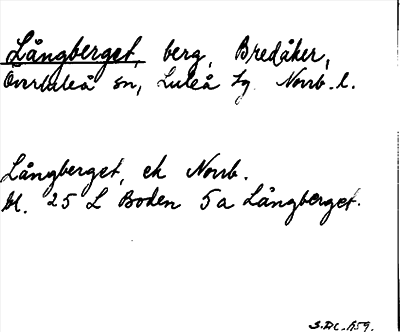 Långberget, berg, Bredåker,
Överluleå sn, Luleå tg. Norrb. l.
Långberget, ek Norrb.
bl. 25 L Boden 5a Långberget.